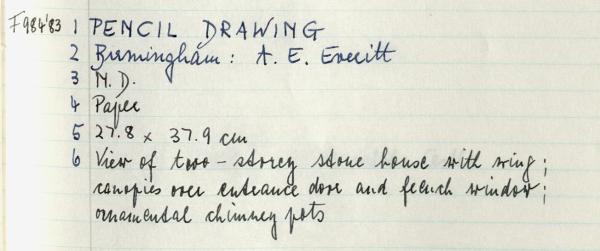 F984'83 1 PENCIL DRAWING
2 Birmingham: A. E. Everitt
3 N.D.
4 Paper
5 27.8 x 37.9 cm
6 View of two-storey stone house with wing;
canopies over entrance door and french window;
ornamental chimney pots